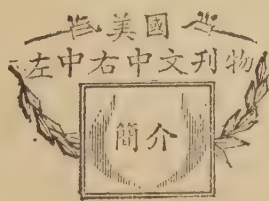 美國
左中右中文刊物
簡介